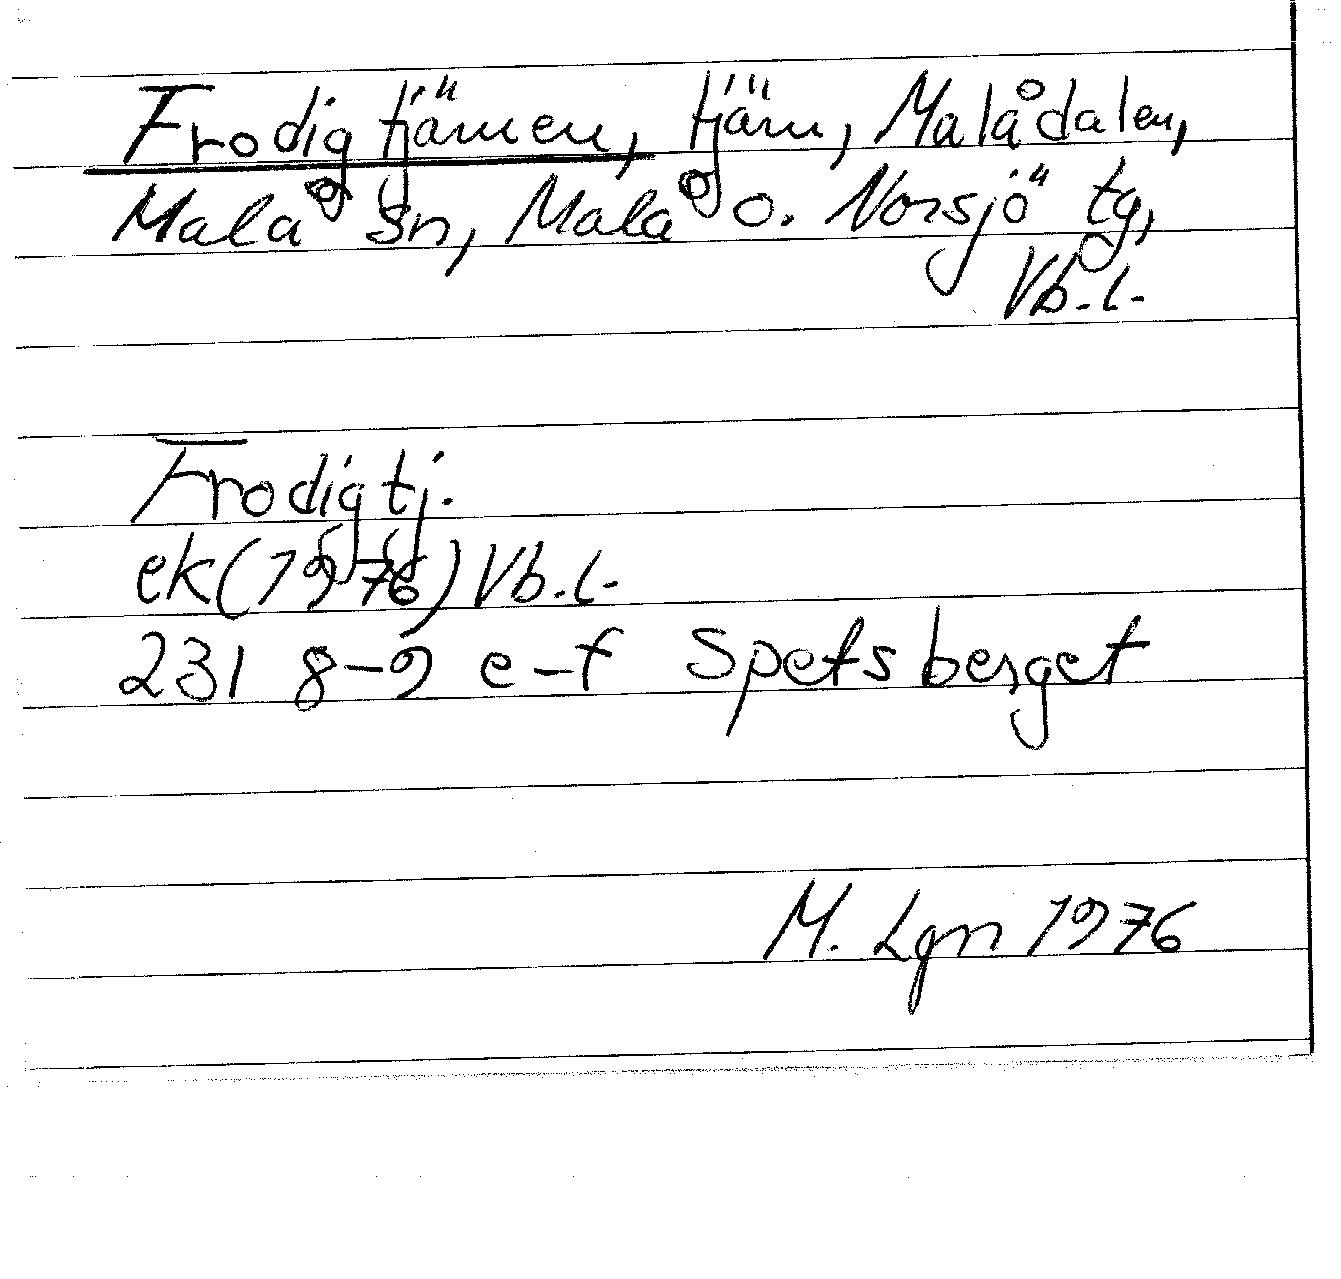 Frodigtjärnen, tjärn, Malådalen,
Malå sn, Malå o. Norsjö tg,
Vb.l.
Frodigtj.
ek(1976) Vb.l.
231 8-9 e-f Spetsberget
M. Lgn 1976